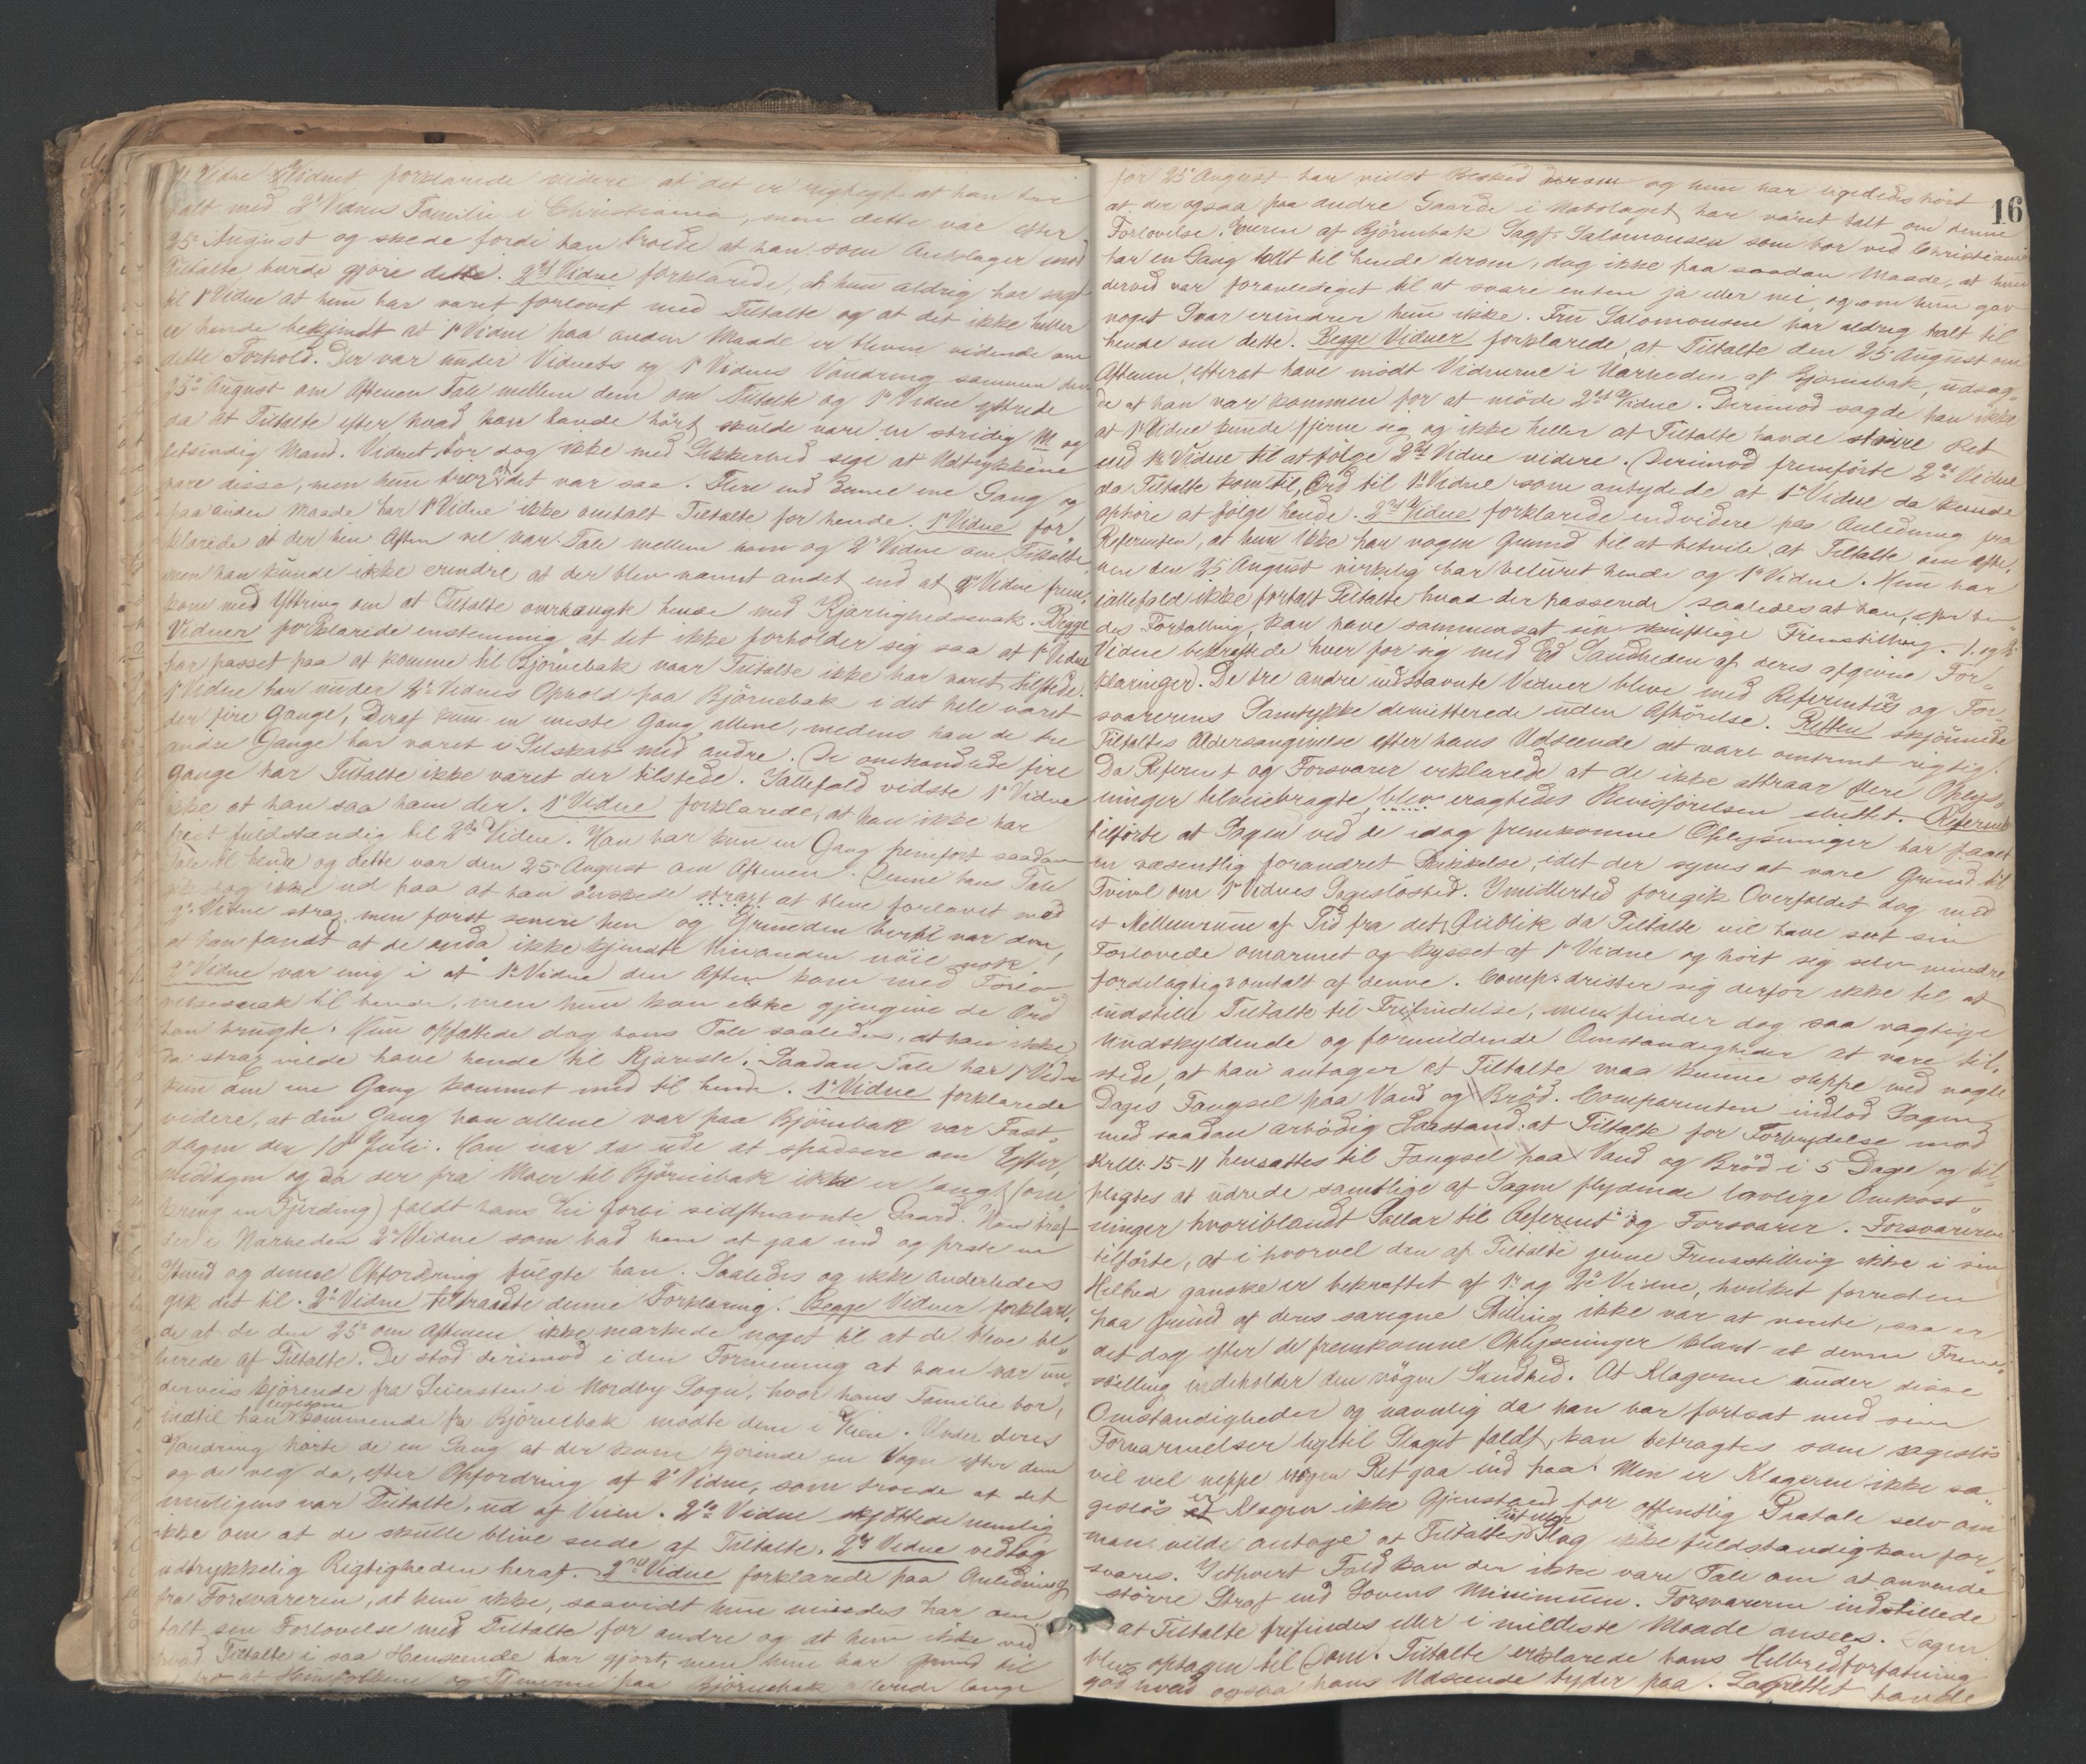 Vidne Vidnet forklarede videre at det er rigtigt at han har
talt med 2det Vidnes Familie i Christiania, men dette var efter
25de August og skede fordi han troede at han som Anklager mod
Tiltalte burde gjøre dette. 2det Vidne forklarede, at hun aldrig har sagt
til 1ste Vidne at hun har været forlovet med Tiltalte og at det ikke heller
er hende bekjendt at 1ste Vidne paa anden Maade er bleven vidende om
dette Forhold. Der var under Vidnets og 1ste Vidnes Vandring sammen den
25de August om Aftenen Tale mellem dem om Tiltalte og 1ste Vidne yttrede
da at Tiltalte efter hvad han havde hørt skulde være en stridig M og
letsindig Mand. Vidnet tør dog ikke med Sikkerhed sige at Udtrykkene
vare disse, men hun tror at det var saa. Flere end denne ene Gang og
paa anden Maade har 1ste Vidne ikke omtalt Tiltalte for hende. 1ste Vidne for„
klarede at der hin Aften vel var Tale mellem ham og 2det Vidne om Tiltalte,
men han kunde ikke erindre at der blev nævnt andet end at 2det Vidne frem„
kom med Yttring om at Tiltalte overhængte hende med Kjærlighedssnak. Begge
Vidner forklarede enstemmig at det ikke forholder sig saa at 1ste Vidne
har passet paa at komme til Bjørnebæk naar Tiltalte ikke har været tilstede.
1ste Vidne har under 2det Vidnes Ophold paa Bjørnebæk i det hele været
der fire Gange, deraf kun en eneste Gang allene, medens han de tre
andre Gange har været i Selskab med andre. De omhandlede fire
Gange har Tiltalte ikke været der tilstede. Iallefald vidste 1ste Vidne
ikke at han saa ham der. 1ste Vidne forklarede, at han ikke har
friet fuldstændig til 2det Vidne. Han har kun en Gang fremført saadan
Tale til hende og dette var den 25de August om Aftenen. Denne hans Tale
gik dog ikke ud paa at han ønskede strax at blive forlovet med
2det Vidne strax men først senere hen og Grunden hertil var den,
at han fandt at de enda ikke kjendte hinanden nøie nok.
2det Vidne var enig i at 1ste Vidne den Aften kom med Forlo„
velsessnak til hende, men hun kan ikke gjengive de Ord
han brugte. Hun opfattede dog hans Tale saaledes, at han ikke
da strax vilde have hende til Kjæreste. Saadan Tale har 1ste Vidne
kun den ene Gang kommet med til hende. 1ste Vidne forklarede
videre, at den Gang han allene var paa Bjørnebæk var Fast„
dagen den 10de Juli. Han var da ude at spadsere om Efter„
middagen og da der fra Moer til Bjørnebæk ikke er langt (om„
kring en Fjerding) faldt hans Vei forbi sidstnævnte Gaard. Han traf
der i Nærheden 2det Vidne som bad ham at gaa ind og prate en
Stund og denne Opfordring fulgte han. Saaledes og ikke anderledes
gik det til. 2det Vidne tiltraadte denne Forklaring. Begge Vidner forklare„
de at de den 25de om Aftenen ikke mærkede noget til at de bleve be„
lurede af Tiltalte. De stod derimod i den Formening at han var un„
derveis kjørende fra Seiersten i Nordby Sogn, hvor hans Familie bor,
indtil han ligesom kommende fra Bjørnebæk mødte dem i Veien. Under deres
Vandring hørte de en Gang at der kom kjørende en Vogn efter dem
og de veg da, efter Opfordring af 2det Vidne, som troede at det
muligens var Tiltalte, ud af Veien. 2det Vidne skjøttede nemlig
ikke om at de skulle blive seede af Tiltalte. 2det Vidne vedtog
udtrykkelig Rigtigheden heraf. 2det Vidne forklarede paa Anledning
fra Forsvareren, at hun ikke, saavidt hun mindes har om„
talt sin Forlovelse med Tiltalte for andre og at hun ikke ved
hvad Tiltalte i saa Henseende har gjort, men hun har Grund til
at tro at Husfolkene og Tjenerne paa Bjørnebæk allerede længe
16
før 25de August har vidst Besked derom og hun har ligeledes hørt
at der ogsaa paa andre Gaarde i Nabolaget har været talt om denne
Forlovelse. Eieren af Bjørnebæk Sagf. Salomonsen som bor ved Christiania
har en Gang talt til hende derom, dog ikke paa saadan Maade, at hun
derved var foranlediget til at svare enten ja eller nei, og om hun gav
noget Svar erindrer hun ikke. Fru Salomonsen har aldrig talt til
hende om dette. Begge Vidner forklarede, at Tiltalte den 25de August om
Aftenen, efterat have mødt Vidnerne i Nærheden af Bjørnebæk, udsag„
de at han var kommen for at møde 2det Vidne. Derimod sagde han ikke
at 1ste Vidne kunde fjerne sig og ikke heller at Tiltalte havde større Ret
end 1ste Vidne til at følge 2det Vidne videre. Derimod fremførte 2det Vidne
da Tiltalte kom til, Ord til 1ste Vidne som antydede at 1ste Vidne da kunde
ophøre at følge hende. 2det Vidne forklarede endvidere paa Anledning fra
Referenten, at hun ikke har nogen Grund til at betvile, at Tiltalte om Afte„
nen den 25 August virkelig har beluret hende og 1ste Vidne. Hun har
iallefald ikke fortalt Tiltalte hvad der passerede saaledes at han, efter hen„
des Fortælling, kan have sammensat sin skriftlige Fremstilling. 1. og 2.
Vidne bekræftede hver for sig med Ed Sandheden af deres afgivne For„
klaringer. De tre andre indstævnte Vidner bleve med Referentens og For„
svarerens Samtykke demitterede uden Afhørelse. Retten skjønnede
Tiltaltes Aldersangivelse efter hans Udseende at være omtrent rigtig.
Da Referent og Forsvarer erklærede at de ikke attraar flere Oplys„
ninger tilveiebragte, blev eragtedes Bevisførelsen sluttet. Referenten
tilførte at Sagen ved de idag fremkomne Oplysninger har faaet
en væsentlig forandret Skikkelse, idet der synes at være Grund til
Tvivl om 1ste Vidnes Sagesløshed. Imidlertid foregik Overfaldet dog med
et Mellemrum af Tid fra det Øieblik da Tiltalte vil have seet sin
Forlovede omarmet og kysset af 1ste Vidne og hørt sig selv mindre
fordelagtigt omtalt af denne. Comp. drister sig derfor ikke til at
indstille Tiltalte til Frifindelse, men finder dog saa vægtige
undskyldende og formildende Omstændigheder at være til„
stede, at han antager at Tiltalte maa kunne slippe med nogle
Dages Fængsel paa Vand og Brød. Comparenten indlod Sagen
med saadan ærbødig Paastand: at Tiltalte for Forbrydelse mod
Krll. 15–11 hensættes til Fængsel paa Vand og Brød i 5 Dage og til„
pligtes at udrede samtlige af Sagen flydende lovlige Omkost„
ninger hvoriblandt Salær til Referent og Forsvarer. Forsvareren
tilførte, at i hvorvel den af Tiltalte givne Fremstilling ikke i sin
Helhed ganske er bekræftet af 1ste og 2det Vidne, hvilket forresten
paa Grund af deres særegne Stilling ikke var at vente, saa er
det dog efter de fremkomne Oplysninger klart at denne Frem„
stilling indeholder den nøgne Sandhed. At Klageren under disse
Omstændigheder og navnlig da han har fortsat med sine
Fornærmelser ligetil Slaget faldt, kan betragtes som sagesløs
vil vel neppe nogen Ret gaa ind paa. Men er Klageren ikke sa„
gesløs er Klagen ikke Gjenstand for offentlig Paatale selv om
man vilde antage at Tiltaltes Slag ikke fuldstændig kan for„
svares. I ethvert Fald kan der ikke være Tale om at anvende
større Straf end Lovens Minimum. Forsvareren indstillede
at Tiltalte frifindes eller i mildeste Maade ansees. Sagen
blev optagen til Dom. Tiltalte erklærede hans Helbredforfatning
god hvad ogsaa hans Udseende tyder paa. Lagrettet havde